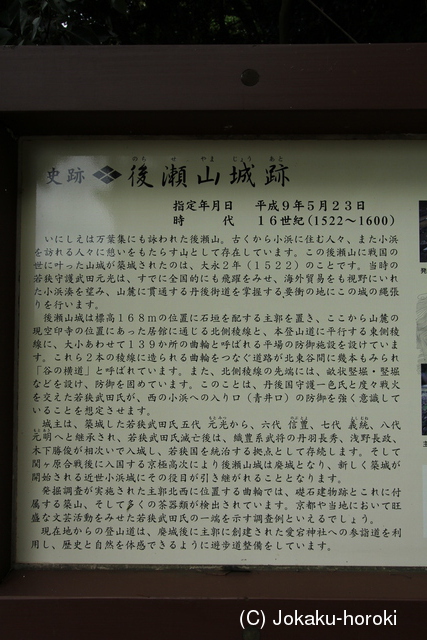 史跡 後瀬山城跡
のち せ やま じょう あと
指定年月日 平成9年5月23日
時 代 16世紀(1522〜1600)
いにしえは万葉集にも詠われた後瀬山。古くから小浜に住む人々、また小浜
を訪れる人々に憩いをもたらす山として存在しています。この後瀬山に戦国の
世に叶った山城が築城されたのは、大永2年(1522)のことです。当時の
若狭守護武田元光は、すでに全国的にも飛躍をみせ、海外貿易をも視野にいれ
た小浜湊を望み、山麓に貫通する丹後街道を掌握する要衝の地にこの城の縄張
りを行います。
後瀬山城は標高168mの位置に石垣を配する主郭を置き、ここから山麓の
現空印寺の位置にあった居館に通じる北側稜線と、本登山道に平行する東側稜
線に、大小あわせて139か所の曲輪と呼ばれる平場の防御施設を設けていま
す。これら2本の稜線に造られる曲輪をつなぐ道路が北東谷間に幾本もみられ
「谷の横道」と呼ばれています。また、北側稜線の先端には、畝状竪堀・竪堀
などを設け、防御を固めています。このことは、丹後国守護一色氏と度々戦火
を交えた若狭武田氏が、西の小浜への入り口(青井口)の防御を強く意識して
いることを想定させます。
城主は、築城した若狭武田氏五代 元光から、六代 信豊、七代 義統、八代
元明へと継承され、若狭武田氏滅亡後は、織豊系武将の丹羽長秀、浅野長政、
木下勝俊が相次いで入城し、若狭国を統治する拠点として存続します。そして
関ヶ原合戦後に入国する京極高次により後瀬山城は廃城となり、新しく築城が
開始される近世小浜城にその役目が引き継がれることとなります。
発掘調査が実施された主郭北西に位置する曲輪では、礎石建物跡とこれに付
属する築山、そして多くの茶器類が検出されています。京都や当地において旺
盛な文芸活動をみせた若狭武田氏の一端を示す調査例といえるでしょう。
現在地からの登山道は、廃城後に主郭に創建された愛宕神社への参詣道を利
用し、歴史と自然を体感できるように遊歩道整備をしています。
(C) Jokaku-horoki